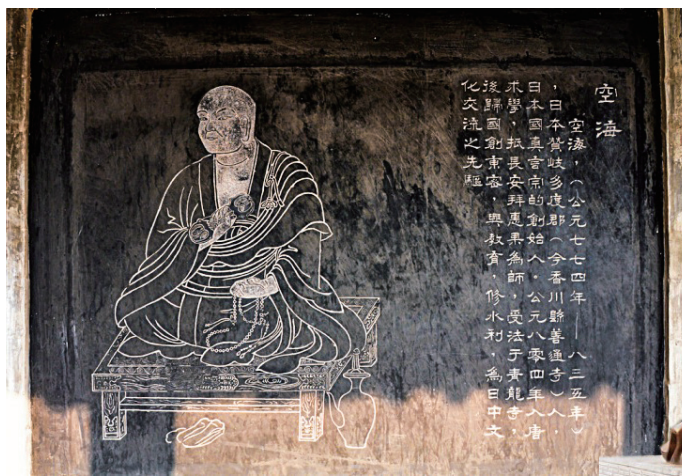 空海
空海，（公元七七四年——八三五年）
，日本贊岐多度郡（今香川縣善通寺）人
日本國真言宗的創始人。公元八零四年入唐
求學，抵長安拜惠果為師，受法于青龍寺，
後歸國創東密，興教育，修水利，為日中文
化交流之先驅